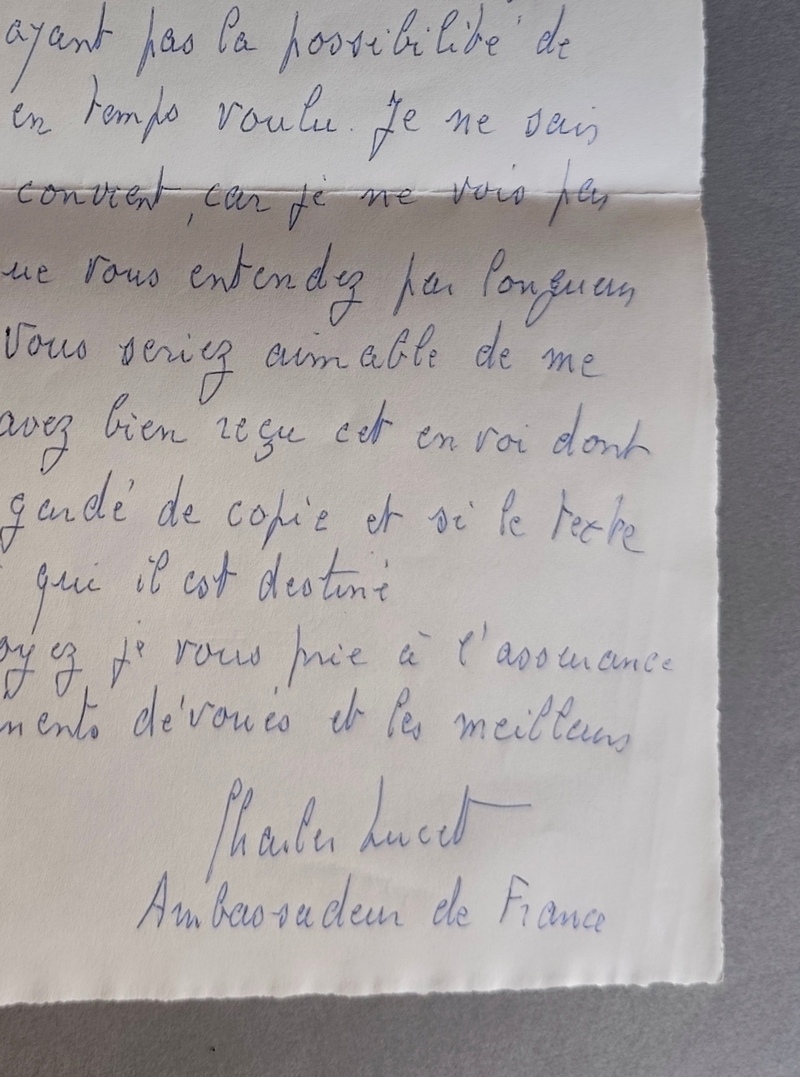 ayant pas la possibilité de
en temps voulu. Je ne sais
convient, car je ne vois pas
ue vous entendez par longueurs
Vous seriez aimable de me
avez bien reçu cet envoi dont
gardé de copie et si le texte
qui il est destiné
oyez je vous prie à l'assurance
ments dévoués et les meilleurs
Charles Lucet
Ambassadeur de France